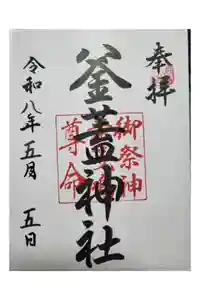 奉拝
釜蓋神社
御祭神
尊命
令和八年五月五日